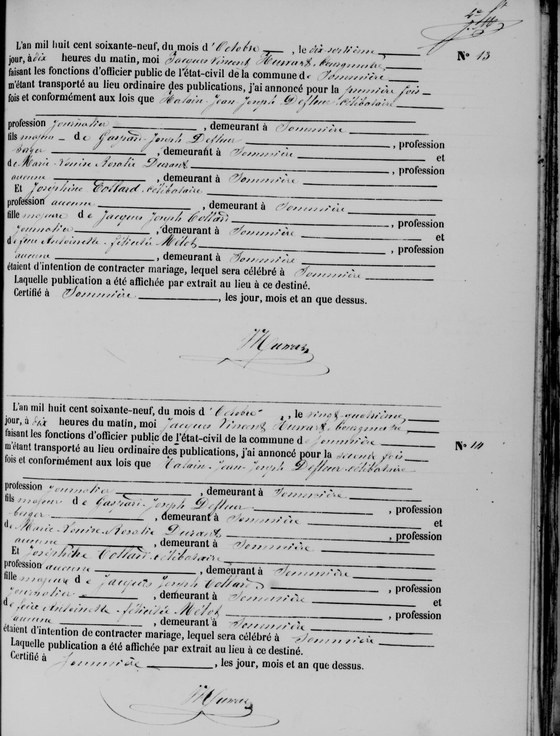 L'an mil huit cent soixante-neuf, du mois d'Octobre, le dix septième,
N° 13
jour, à dix heures du matin, moi Jacques Vincent bourgmestre
faisant les fonctions d'officier public de l'état-civil de la commune de Sommière
m'étant transporté au lieu ordinaire des publications, j'ai annoncé pour la première fois
fois et conformément aux lois que Jean Joseph célibataire
profession journalier, demeurant à Sommière
fils majeur de Joseph, profession
, demeurant à Sommière et
de Marie Louise Rosalie Durant, profession
aucune, demeurant à Sommière
Et Joséphine Collard célibataire
profession aucune, demeurant à Sommière
fille majeure de Jacques Joseph Collard, profession
journalier, demeurant à Sommière et
de feue Antoinette Félicité Mélot, profession
aucune, demeurant à Sommière
étaient d'intention de contracter mariage, lequel sera célébré à Sommière
Laquelle publication a été affichée par extrait au lieu à ce destiné.
Certifié à Sommière, les jour, mois et an que dessus.
L'an mil huit cent soixante-neuf, du mois d'Octobre, le vingt quatrième,
jour, à dix heures du matin, moi Jacques Vincent bourgmestre
faisant les fonctions d'officier public de l'état-civil de la commune de Sommière
N° 14
m'étant transporté au lieu ordinaire des publications, j'ai annoncé pour la seconde fois
fois et conformément aux lois que Jean Joseph célibataire
profession journalier, demeurant à Sommière
fils majeur de Joseph, profession
, demeurant à Sommière et
de Marie Louise Rosalie Durant, profession
aucune, demeurant à Sommière
Et Joséphine Collard célibataire
profession aucune, demeurant à Sommière
fille majeure de Jacques Joseph Collard, profession
journalier, demeurant à Sommière et
de feue Antoinette Félicité Mélot, profession
aucune, demeurant à Sommière
étaient d'intention de contracter mariage, lequel sera célébré à Sommière
Laquelle publication a été affichée par extrait au lieu à ce destiné.
Certifié à Sommière, les jour, mois et an que dessus.